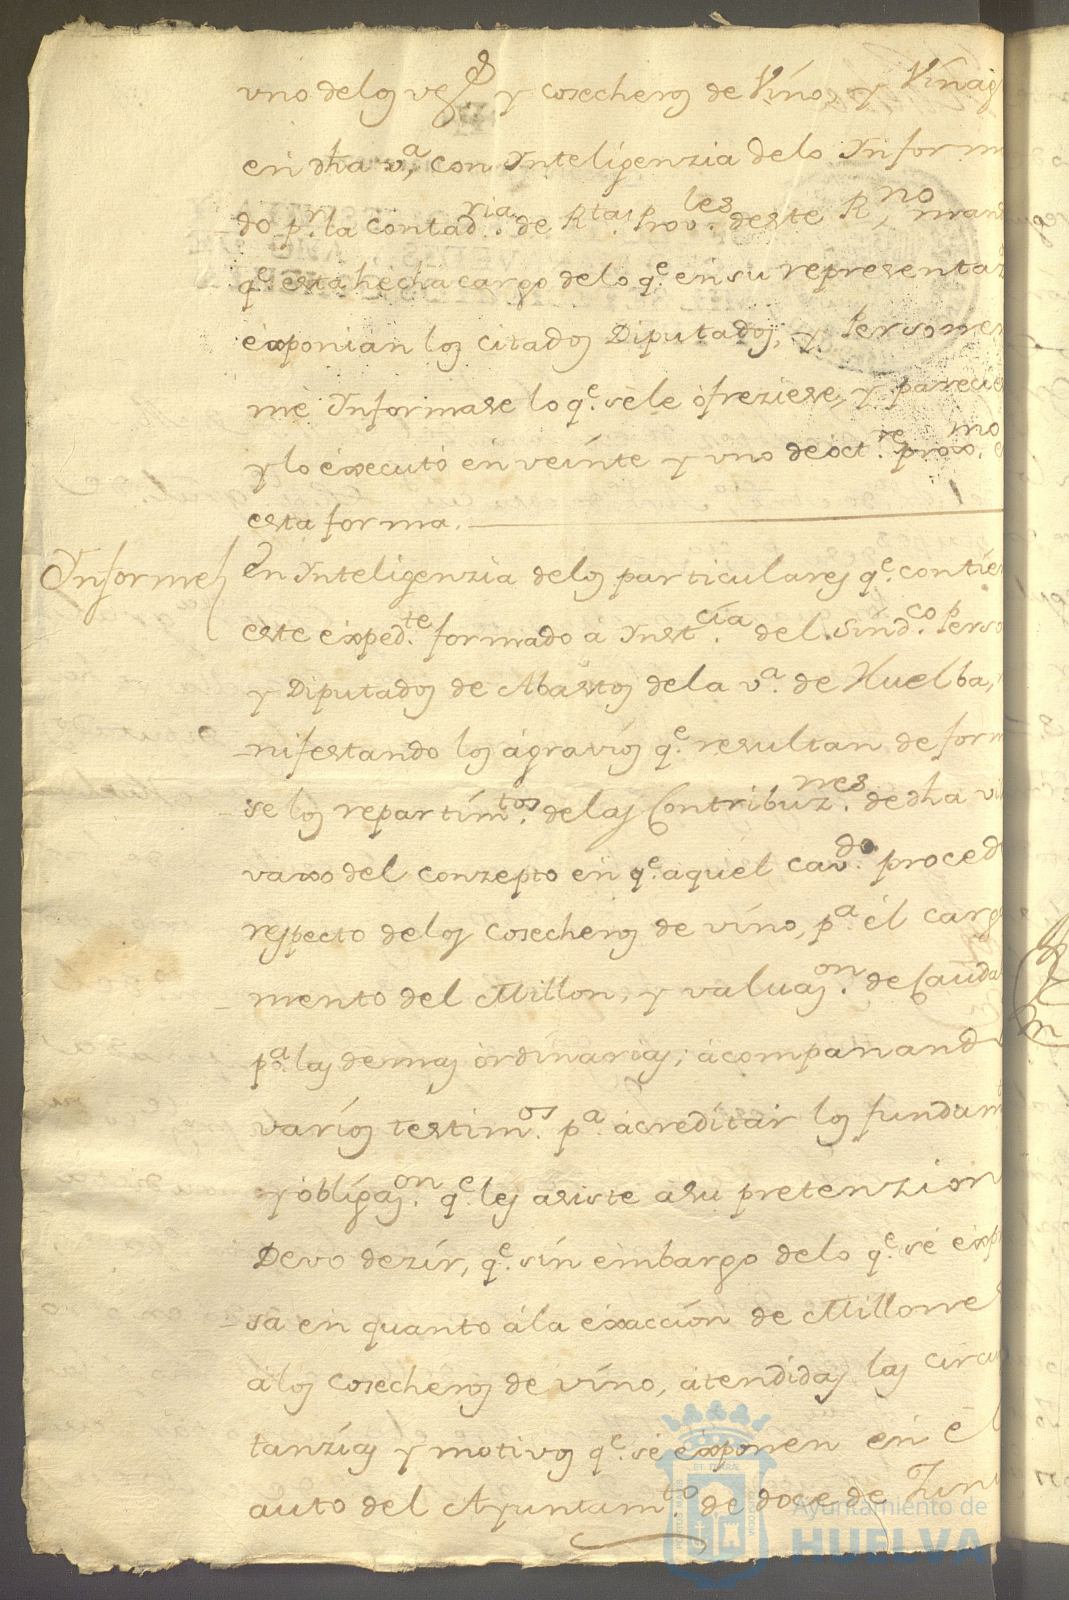 uno delos vezs. y cosecheros de Víno, y Vínag
en dha va. con Inteligenzia delo Inform
do pr. la contadria. de Rtas. Provles. deste Rno, man
qe. esta hecha cargo delo qe. en su representaz
exponian los citados Diputados, y Persone
me Informase lo qe. sele ofreziese, y parecie
y lo executó en veinte y uno de octre. proxmo. e
esta forma.
Informe
En Inteligenzia delos particulares qe. contie
este expedte. formado á Instcía. del Síndco. Perso
y Diputados de Abastos dela va. de Huelba,
nifestando los agravíos qe. resultan de form
se los repartimtos. delas Contribuznes. de dha vi
vaxo del conzepto en qe. aquel cavdo. proced
respecto delos cosecheros de víno, pa. el carg
mento del Millon, y valuazon. de Cauda
pa. las demas ordinarias; acompanand
varíos testimos. pa. acreditar los fundam
y oblígazon. qe. les asiste asu pretenzion
Devo dezír, qe. sín embargo delo qe. se exp
sa en quanto ála exaccíon de Millone
á los cosecheros de víno, atendidas las circu
tanzías y motivos qe. se exponen en el
auto del Ayuntamto. de doze de Jun
PORTUS MARIS
ET TERRAE
CUSTODIA
Ayuntamiento de
HUELVA